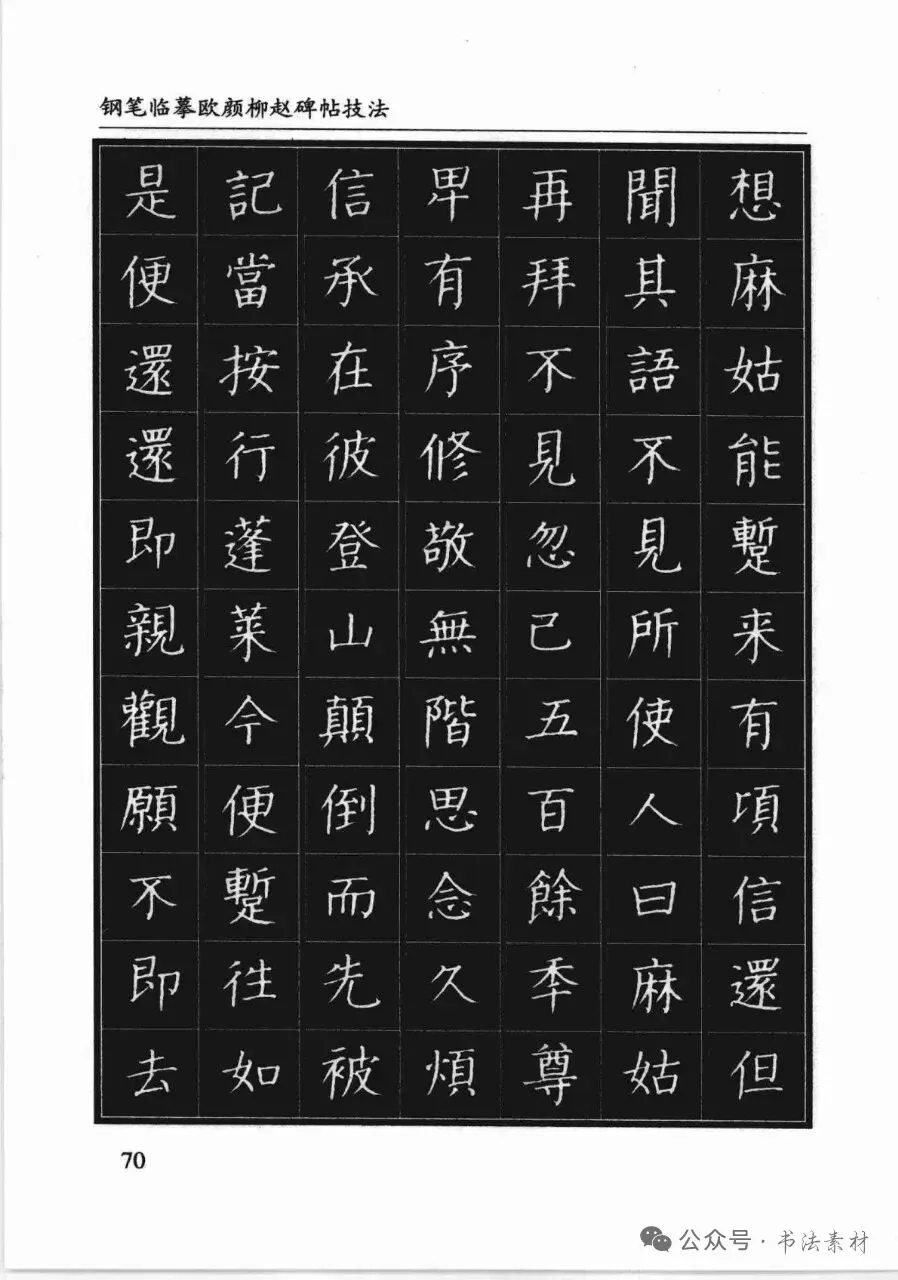 钢笔临摹欧颜柳赵碑帖技法
想麻姑能蹔来有頃信還但
聞其語不見所使人曰麻姑
再拜不見忽已五百餘秊尊
卑有序修敬無階思念久煩
信承在彼登山顛倒而先被
記當按行蓬萊今便蹔往如
是便還還即親觀願不即去
70
公众号·书法素材